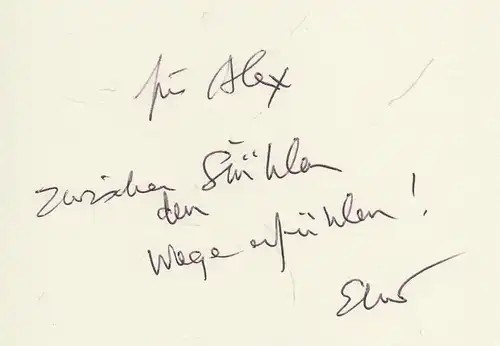 für Alex
zwischen Stühlen
den
Wege erfühlen!